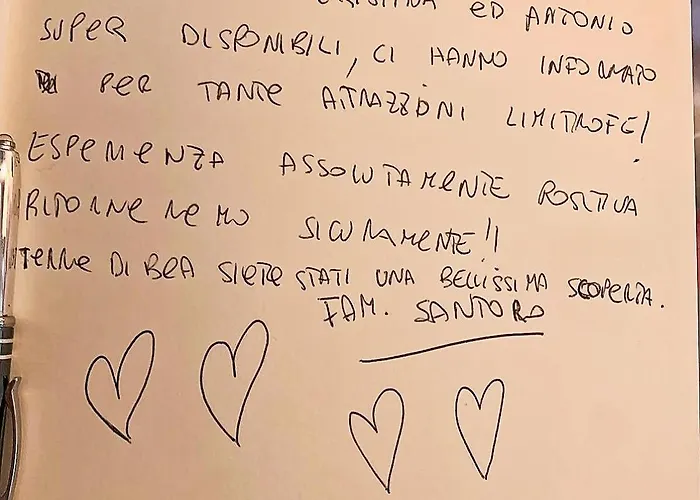 ED ANTONIO
SUPER DISPONIBILI, CI HANNO INFORMATO
PER TANTE ATTRAZZIONI LIMITROFE!
ESPERIENZA ASSOLUTAMENTE POSITIVA
RITORNEREMO SICURAMENTE!!
TERRE DI BEA SIETE STATI UNA BELLISSIMA SCOPERTA.
FAM. SANTORO